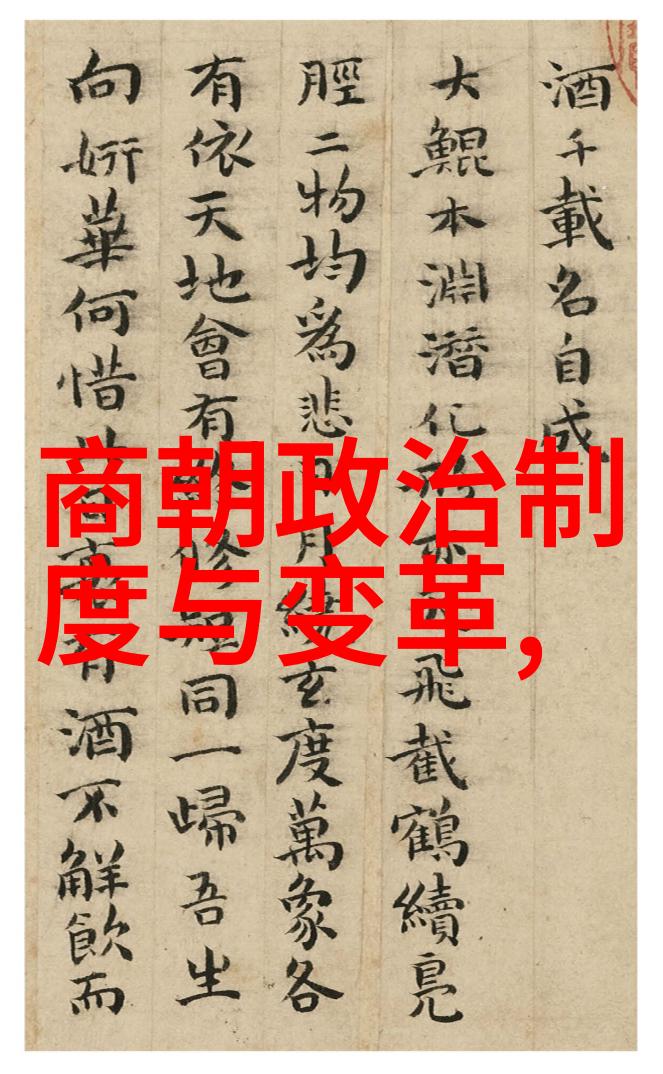 酒千載名自成
大鯤本淵潛化亦飛截鶴續鳧
脛二物均爲悲日月玄度萬象各
有依天地會有修短同一歸吾生
向妍華何惜有酒不解飲而
商朝政治制
度与变革,